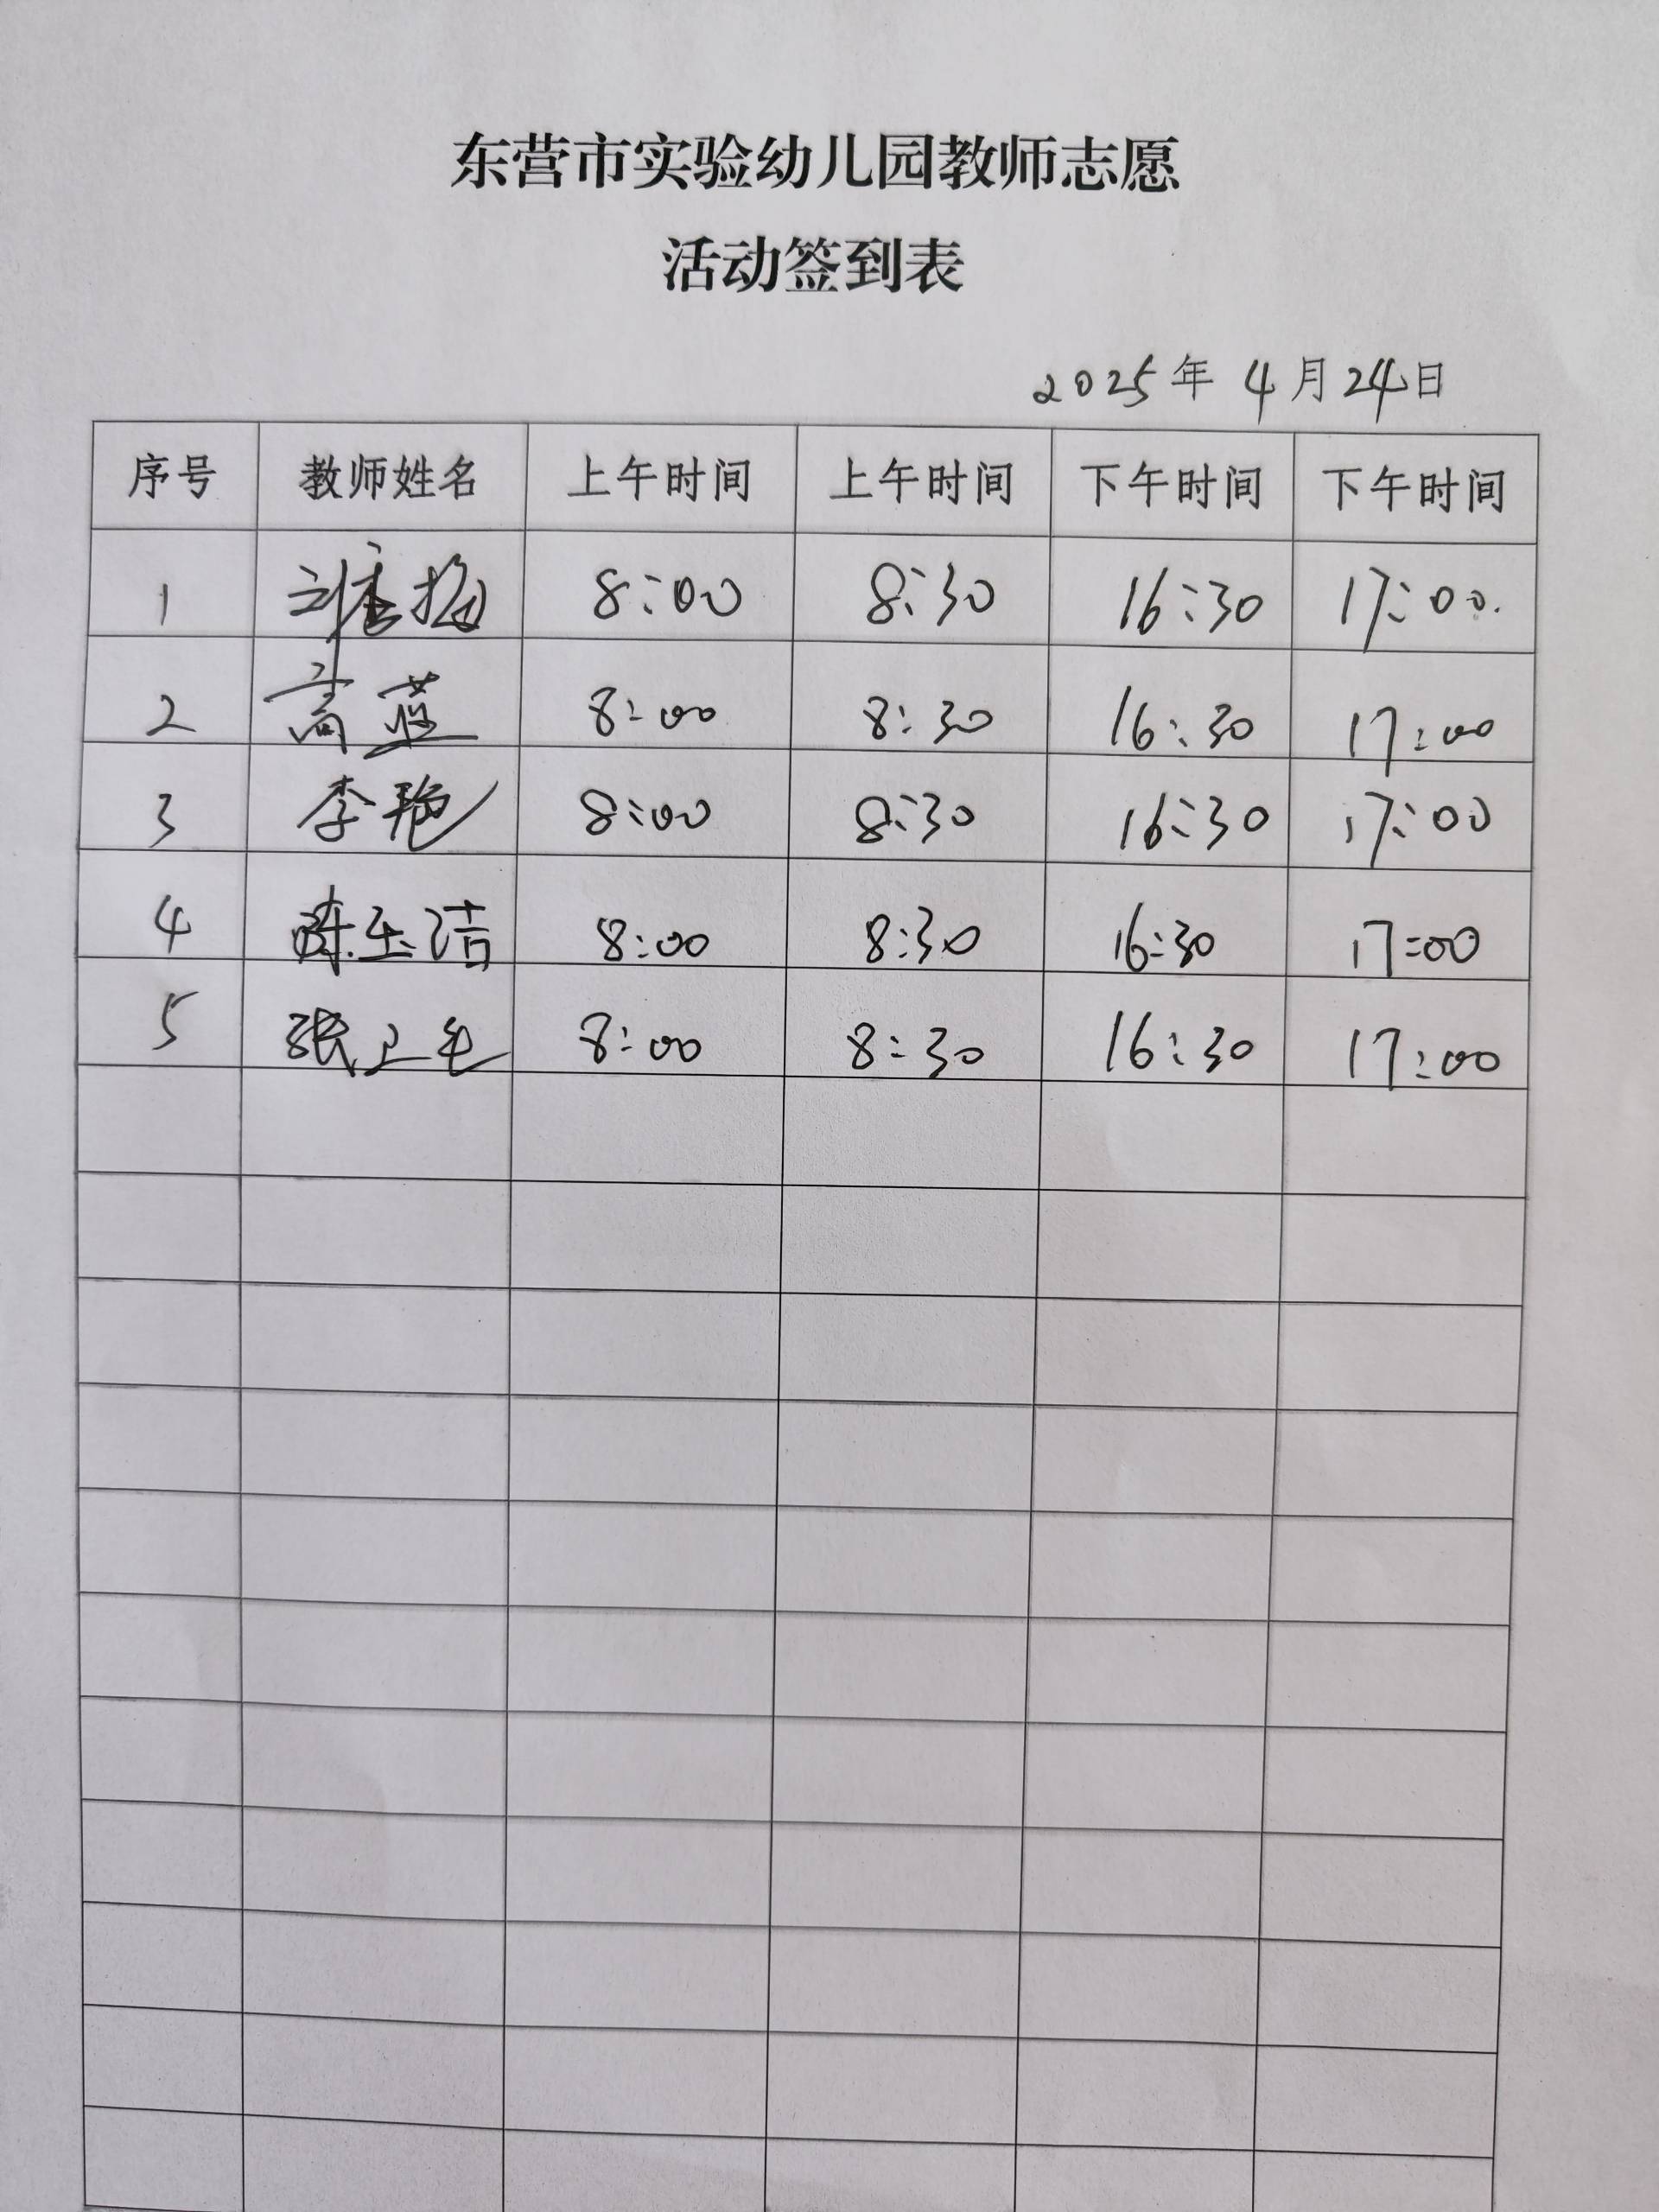 东营市实验幼儿园教师志愿
活动签到表
2025年 4月24日
序号 教师姓名 上午时间 上午时间 下午时间 下午时间
1 8:00 8:30 16:30 17:00.
2 高蓝 8:00 8:30 16:30 17:00
3 李艳 8:00 8:30 16:30 17:00
4 陈玉洁 8:00 8:30 16:30 17:00
5 张卫 8:00 8:30 16:30 17:00